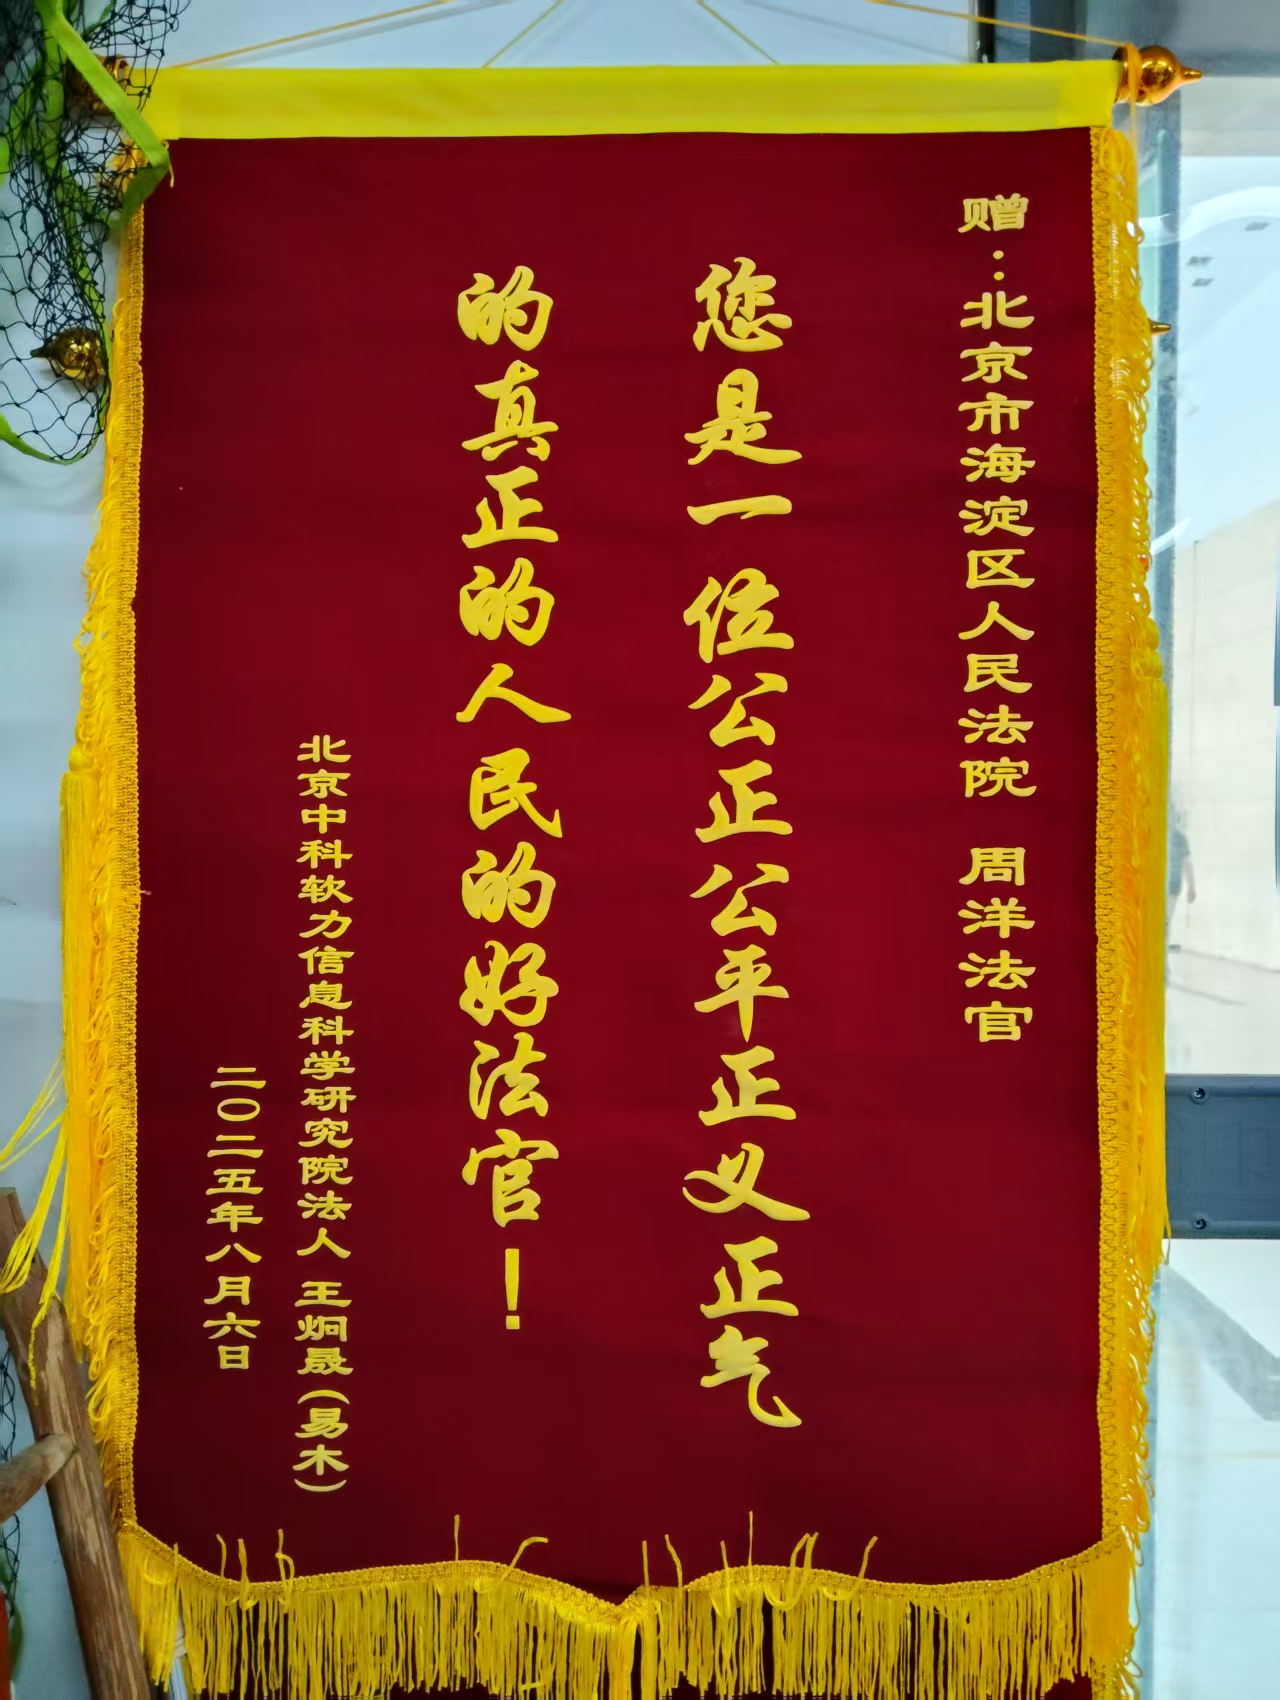 赠：北京市海淀区人民法院 周洋法官
您是一位公正公平正义正气
的真正的人民的好法官！
北京中科软力信息科学研究院法人 王炯晟（易木）
二〇二五年八月六日